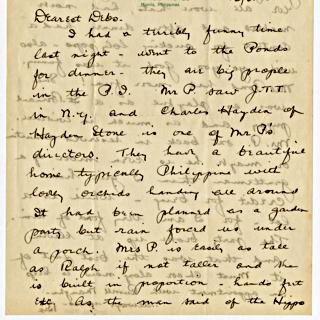 Manila, Philippines
Dearest Debs.
I had a terribly funny time
last night - went to the Ponds
for dinner - they are big people
in the P.I. Mr P. saw J.T.T.
in N.Y. and Charles Hayden of
Hayden Stone is one of Mr. P's
directors. They have a beautiful
home typically Philippine with
lovely orchids handing all around
It had been planned as a garden
party but rain forced us under
a porch. Mrs P. is easily as tall
as Ralph if not taller and she
is built in proportion - hands feet
etc. As the man said of the Hippo